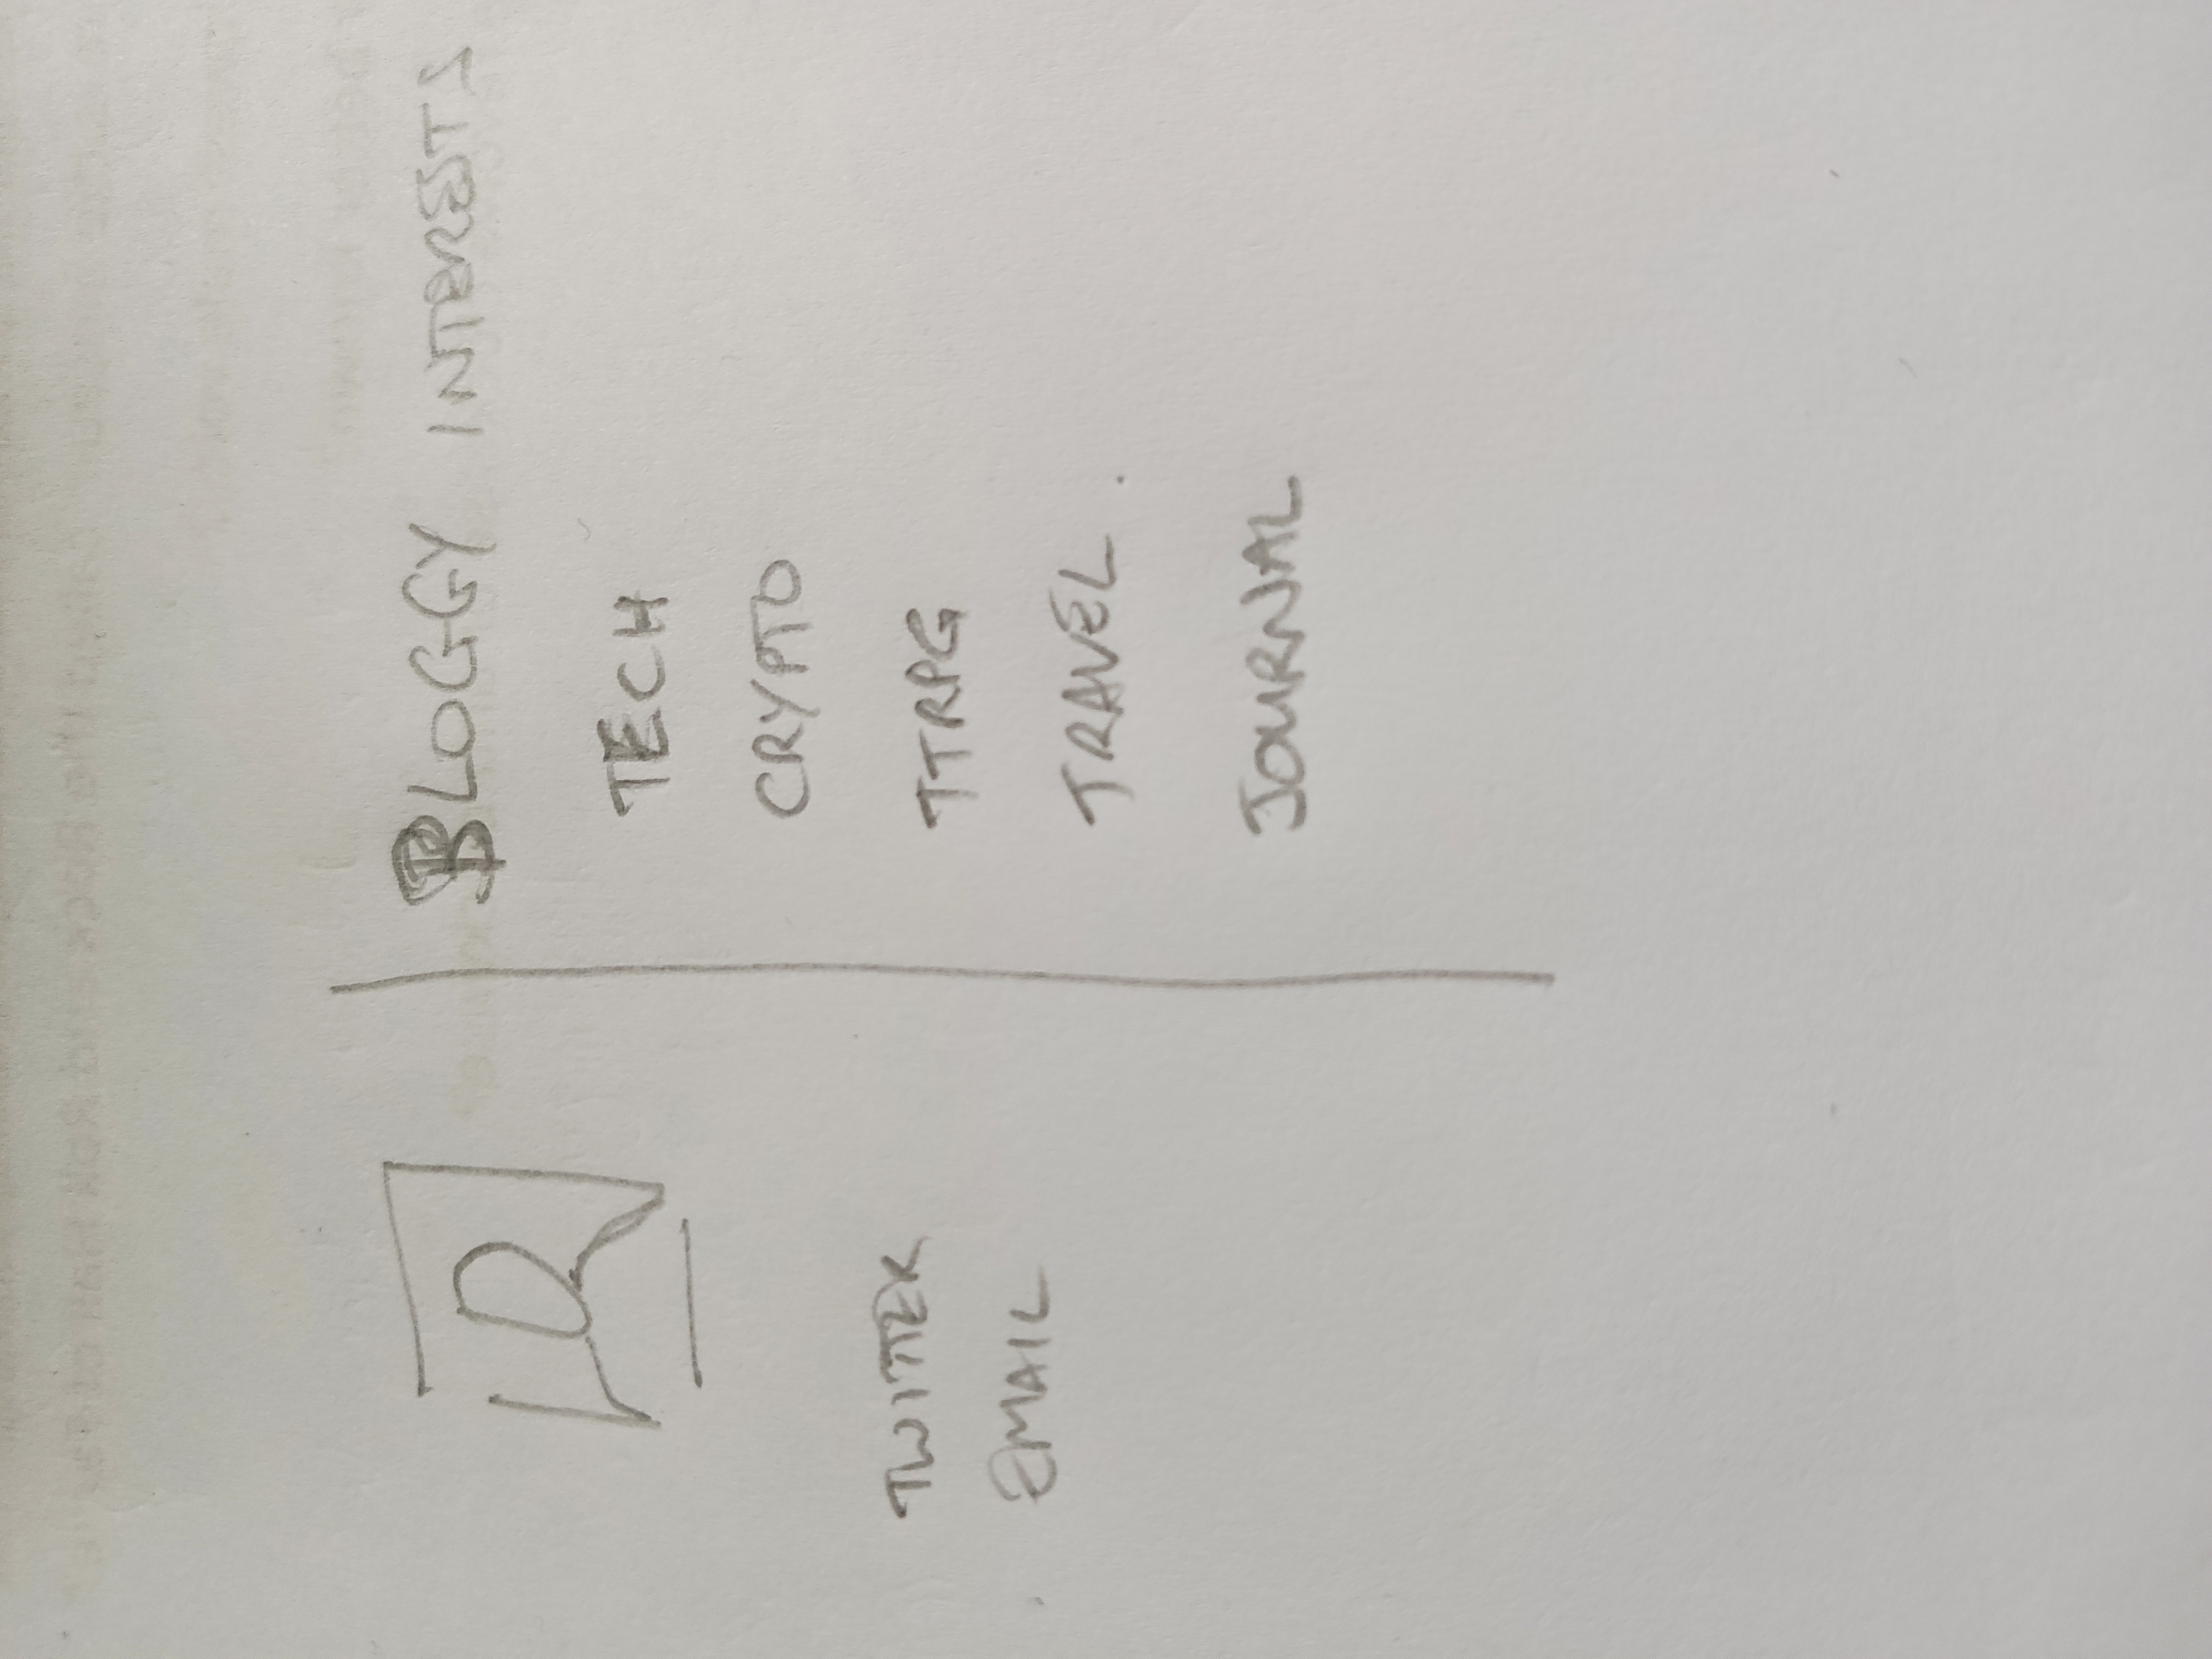 BLOGGY INTERESTS
TECH
CRYPTO
TTRPG
TRAVEL.
JOURNAL
TWITTER
EMAIL